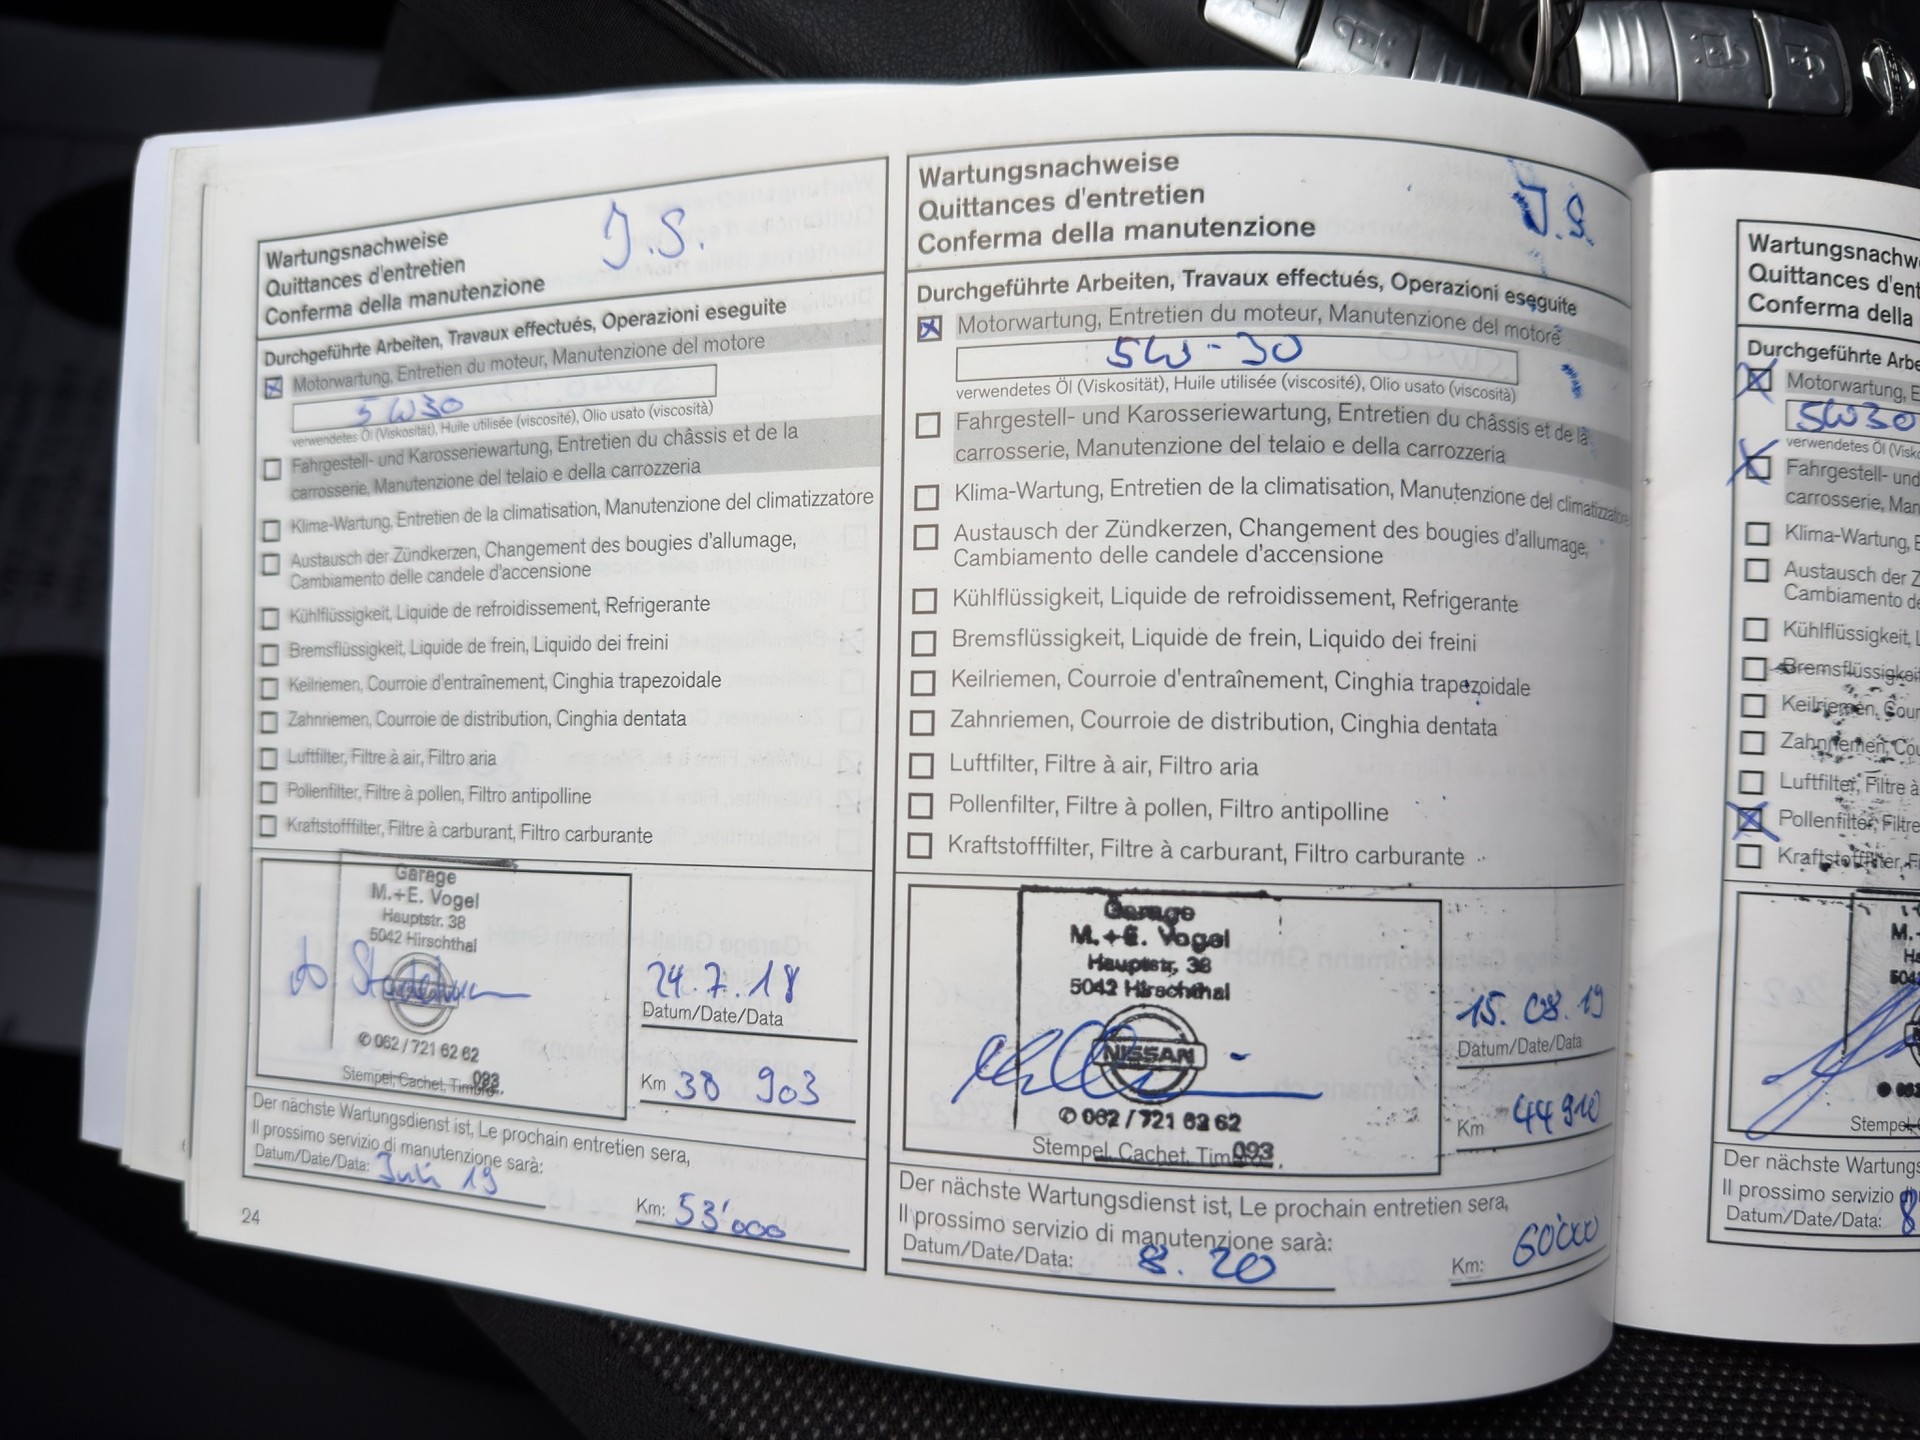 Wartungsnachweise
Quittances d'entretien
Conferma della manutenzione
J.S.
Durchgeführte Arbeiten, Travaux effectués, Operazioni eseguite
Motorwartung, Entretien du moteur, Manutenzione del motore
5W30
verwendetes Öl (Viskosität), Huile utilisée (viscosité), Olio usato (viscosità)
Fahrgestell- und Karosseriewartung, Entretien du châssis et de la
carrosserie, Manutenzione del telaio e della carrozzeria
Klima-Wartung, Entretien de la climatisation, Manutenzione del climatizzatore
Austausch der Zündkerzen, Changement des bougies d'allumage,
Cambiamento delle candele d'accensione
Kühlflüssigkeit, Liquide de refroidissement, Refrigerante
Bremsflüssigkeit, Liquide de frein, Liquido dei freini
Keilriemen, Courroie d'entraînement, Cinghia trapezoidale
Zahnriemen, Courroie de distribution, Cinghia dentata
Luftfilter, Filtre à air, Filtro aria
Pollenfilter, Filtre à pollen, Filtro antipolline
Kraftstofffilter, Filtre à carburant, Filtro carburante
Garage
M.+E. Vogel
Hauptstr. 38
5042 Hirschthal
NISSAN
✆ 062 / 721 62 62
093
Stempel, Cachet, Timbro
24.7.18
Datum/Date/Data
Km 38 903
Der nächste Wartungsdienst ist, Le prochain entretien sera,
Il prossimo servizio di manutenzione sarà:
Datum/Date/Data: Juli 19
Km: 53'000
24
Wartungsnachweise
Quittances d'entretien
Conferma della manutenzione
J.S.
Durchgeführte Arbeiten, Travaux effectués, Operazioni eseguite
Motorwartung, Entretien du moteur, Manutenzione del motore
5W-30
verwendetes Öl (Viskosität), Huile utilisée (viscosité), Olio usato (viscosità)
Fahrgestell- und Karosseriewartung, Entretien du châssis et de la
carrosserie, Manutenzione del telaio e della carrozzeria
Klima-Wartung, Entretien de la climatisation, Manutenzione del climatizzatore
Austausch der Zündkerzen, Changement des bougies d'allumage,
Cambiamento delle candele d'accensione
Kühlflüssigkeit, Liquide de refroidissement, Refrigerante
Bremsflüssigkeit, Liquide de frein, Liquido dei freini
Keilriemen, Courroie d'entraînement, Cinghia trapezoidale
Zahnriemen, Courroie de distribution, Cinghia dentata
Luftfilter, Filtre à air, Filtro aria
Pollenfilter, Filtre à pollen, Filtro antipolline
Kraftstofffilter, Filtre à carburant, Filtro carburante
Garage
M.+E. Vogel
Hauptstr. 38
5042 Hirschthal
NISSAN
✆ 062 / 721 62 62
093
Stempel, Cachet, Timbro
15.08.19
Datum/Date/Data
Km 44910
Der nächste Wartungsdienst ist, Le prochain entretien sera,
Il prossimo servizio di manutenzione sarà:
Datum/Date/Data: 8.20
Km: 60'000
Wartungsnachw
Quittances d'ent
Conferma della
Durchgeführte Arbe
Motorwartung, E
5W30
verwendetes Öl (Visk
Fahrgestell- und
carrosserie, Man
Klima-Wartung, E
Austausch der Z
Cambiamento de
Kühlflüssigkeit, L
Bremsflüssigkeit
Keilriemen, Cour
Zahnriemen, Cou
Luftfilter, Filtre à
Pollenfilter, Filtre
Kraftstofffilter, F
M.
504
062
Stempel, C
Der nächste Wartungs
Il prossimo servizio di
Datum/Date/Data: 8